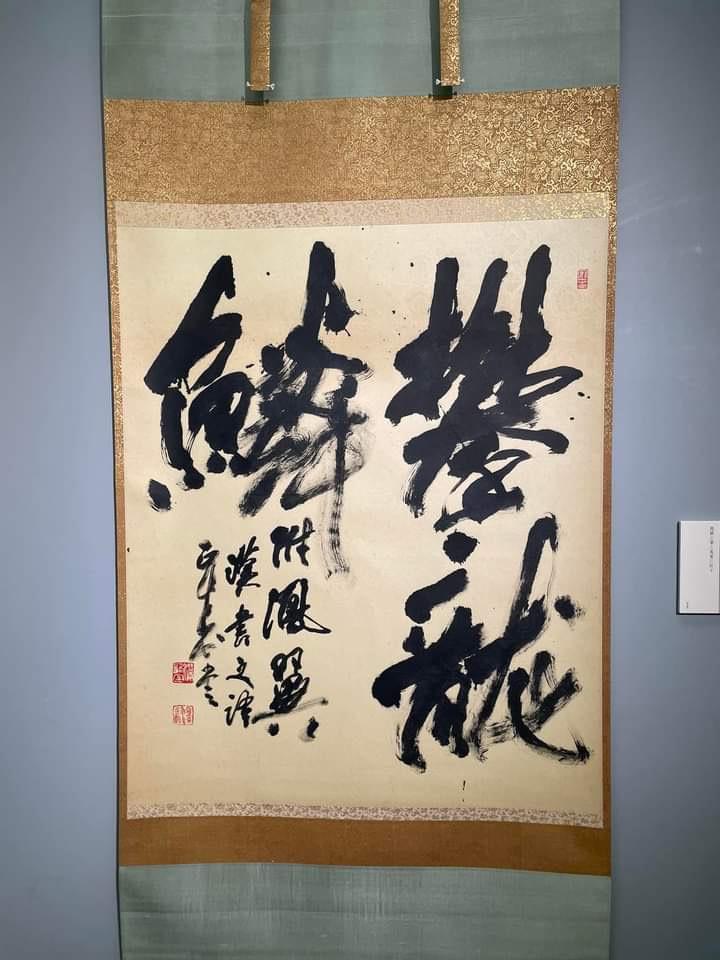 攀龍
鱗
附鳳翼
漢書文